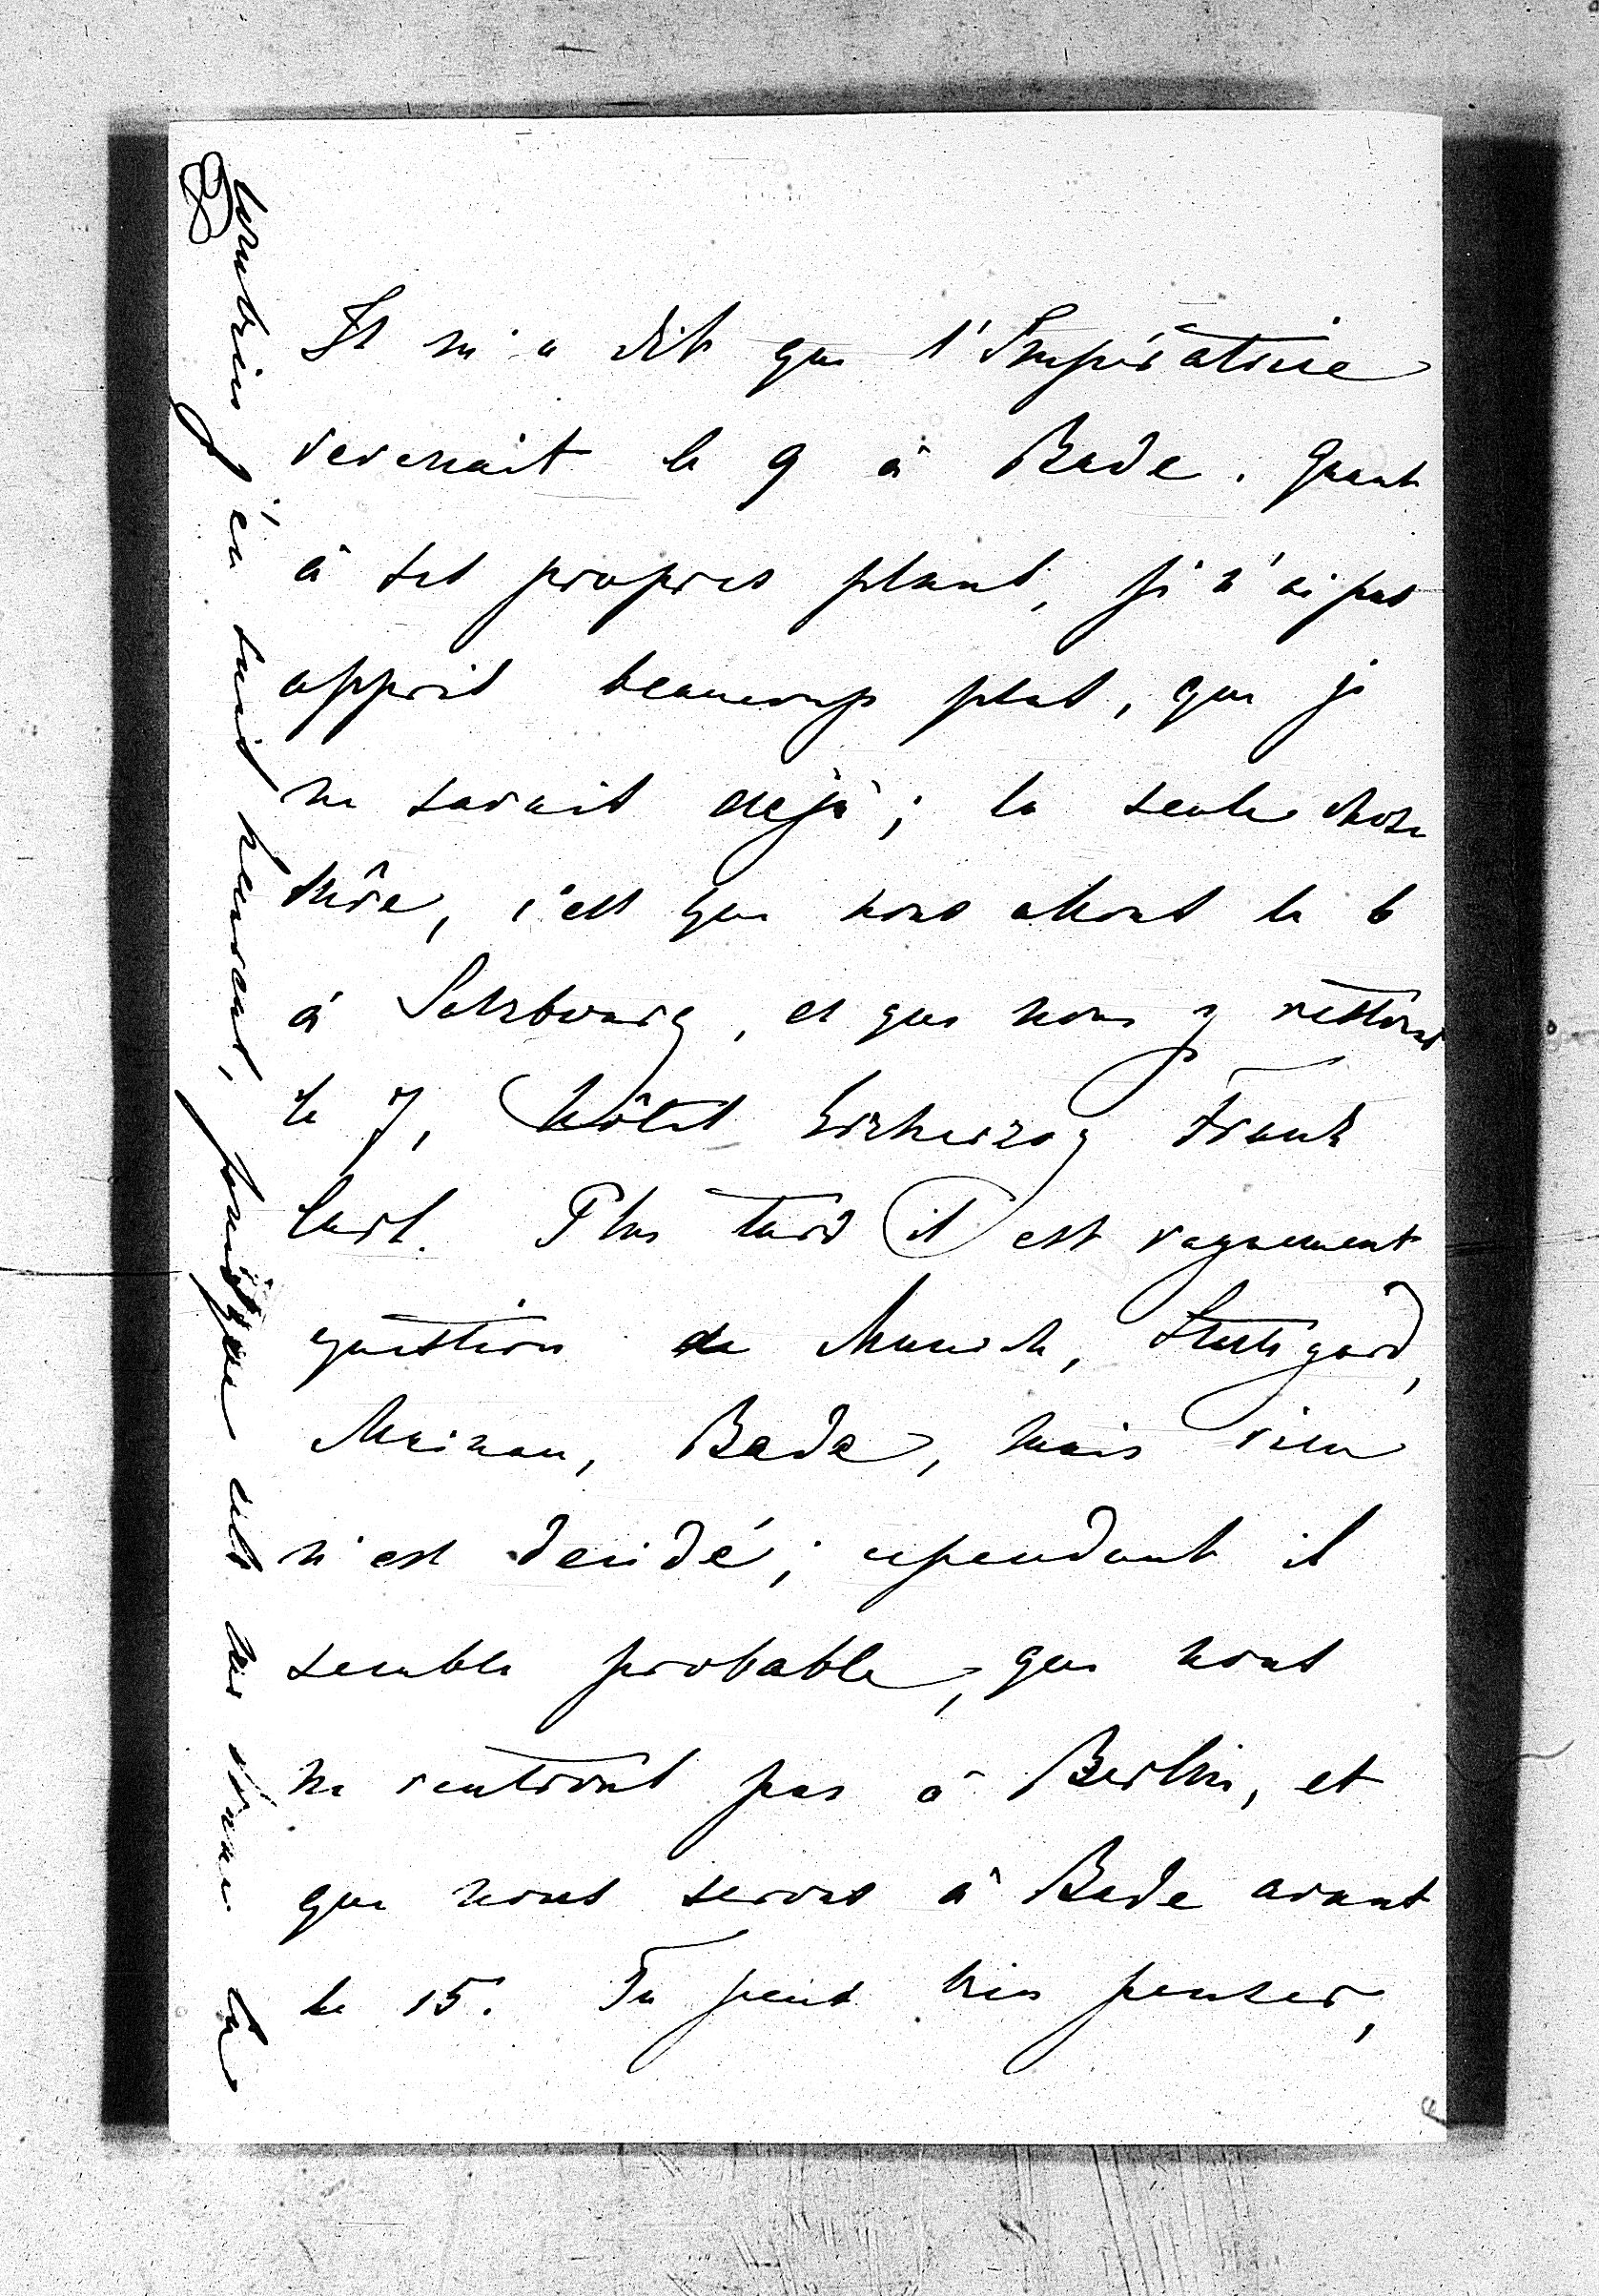 Il m'a dit que l'Impératrice
revenait le 9 à Bade. Quant
à ses propres plans, je n'ai pas
appris beaucoup plus, que je
ne savais dejà; la seule chose
sûre, c'est que nous allons le 6
à Salzbourg, et que nous y restons
le 7, hôtel Erzherzog Frank
Carl. Plus tard il est vaguement
question de Munich, Stuttgard,
Mainau, Bade, mais rien
n'est decidé; cependant il
semble probable, que nous
ne rentrons pas à Berlin, et
que nous serons à Bade avant
le 15. Tu peux bien penser,
combien j'en suis heureux, puisque cela me donne la